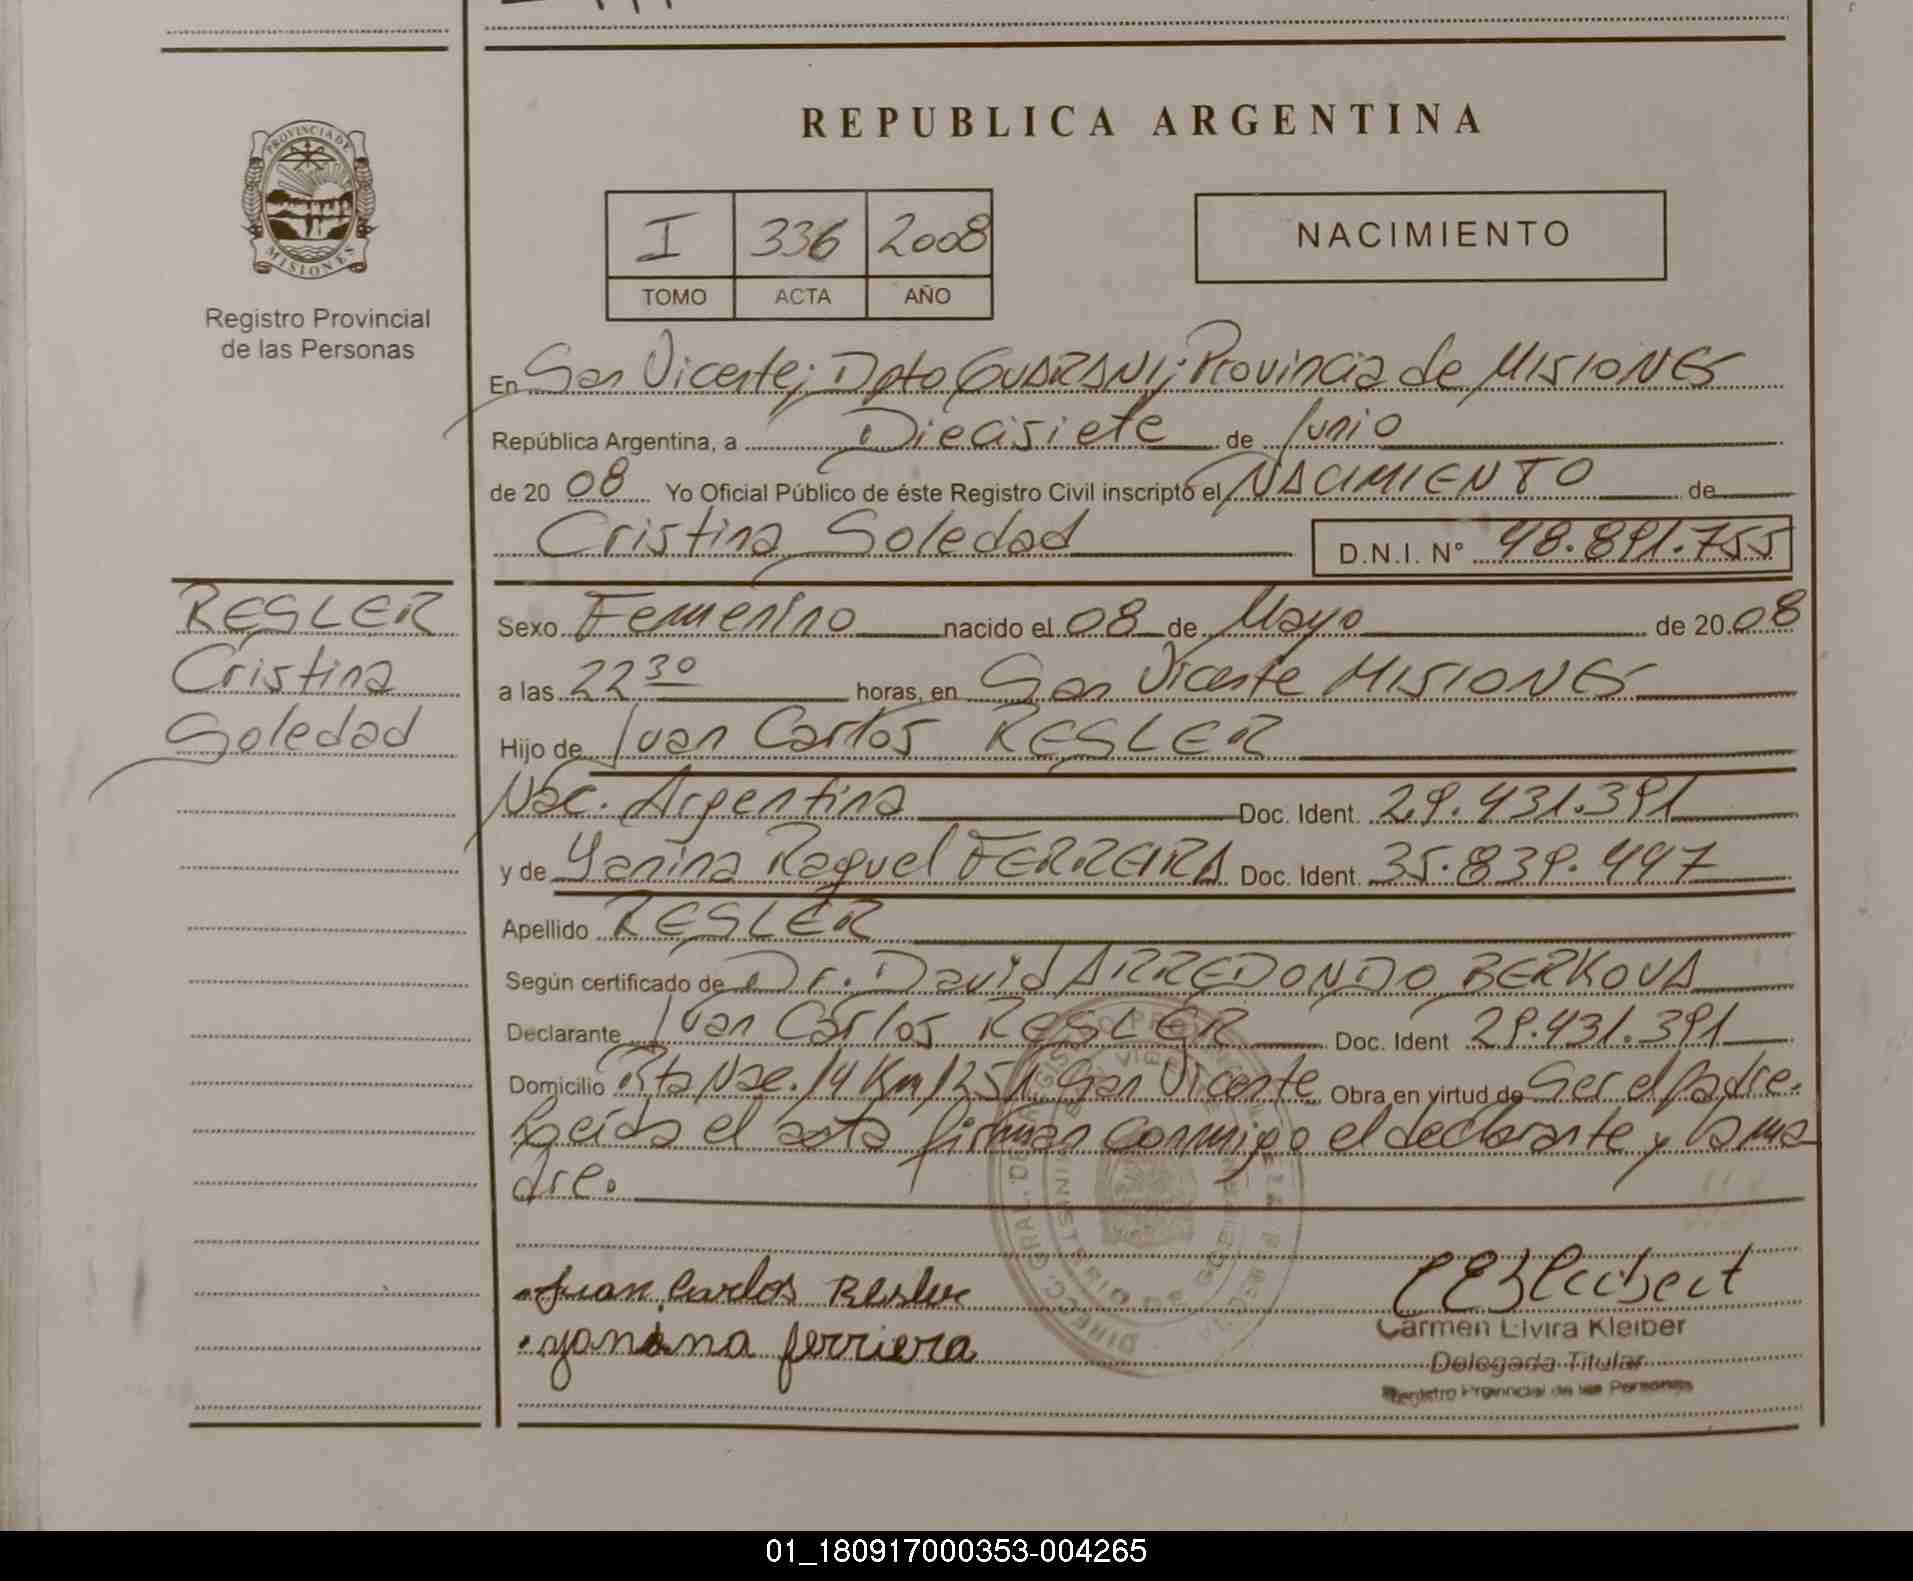 REPUBLICA ARGENTINA
PROVINCIA DE MISIONES
Registro Provincial
de las Personas
I 336 2008
TOMO ACTA AÑO
NACIMIENTO
En San Vicente; Dpto GUARANI; Provincia de MISIONES
República Argentina, a Diecisiete de Junio
de 20 08 Yo Oficial Público de éste Registro Civil inscripto el NACIMIENTO de
Cristina Soledad D.N.I. N° 48.891.755
RESLER
Cristina
Soledad
Sexo Femenino nacido el 08 de Mayo de 20 08
a las 22 30 horas, en San Vicente MISIONES
Hijo de Juan Carlos RESLER
Nac. Argentina Doc. Ident. 29.431.391
y de Yanina Raquel FERREIRA Doc. Ident. 35.839.447
Apellido RESLER
Según certificado de Dr. David ARREDONDO BERKOVA
Declarante Juan Carlos RESLER Doc. Ident 29.431.391
Domicilio Rta Nac. 14 Km 1251 San Vicente Obra en virtud de Ser el padre.
Leída el acta firman conmigo el declarante y la ma
dre.
Juan Carlos Resler
yanina ferriera
Carmen Elvira Kleiber
Delegada Titular
Registro Provincial de las Personas
01_180917000353-004265